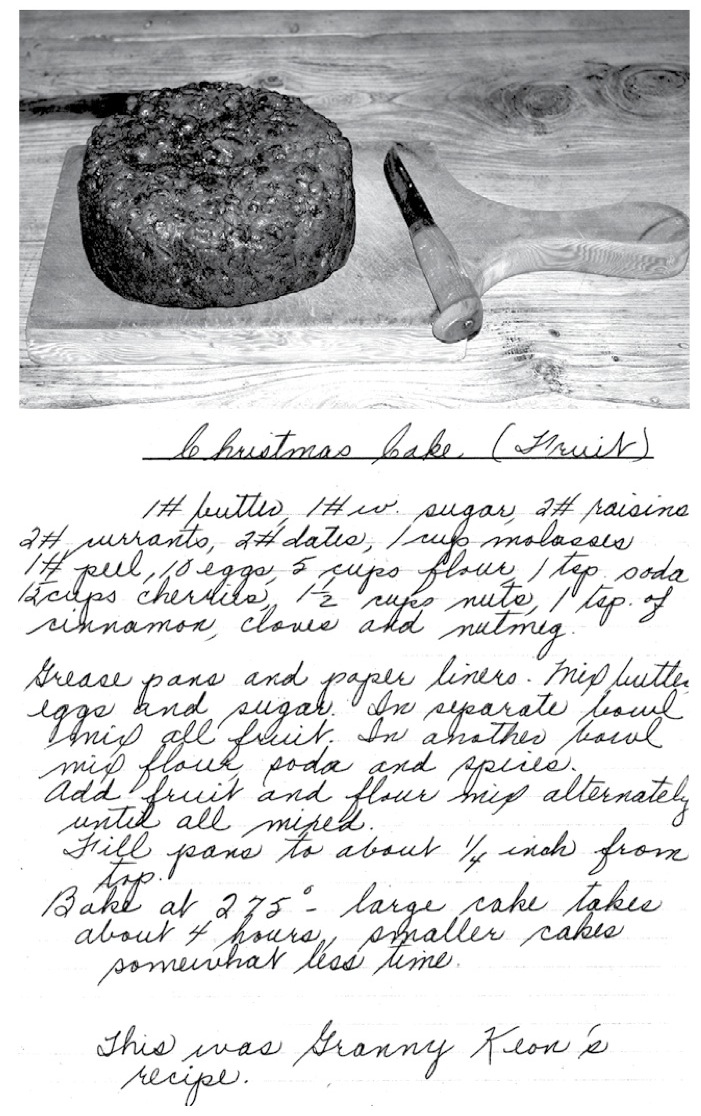 Christmas Cake (Fruit)
1# butter, 1# w. sugar, 2# raisins
2# currants, 2# dates, 1 cup molasses
1# peel, 10 eggs, 5 cups flour, 1 tsp soda
cups cherries, 1½ cups nuts, 1 tsp. of
cinnamon, cloves and nutmeg.
Grease pans and paper liners. Mix butter
eggs and sugar. In separate bowl
mix all fruit. In another bowl
mix flour, soda and spices.
Add fruit and flour mix alternately
until all mixed.
Fill pans to about ¼ inch from
top.
Bake at 275° - large cake takes
about 4 hours, smaller cakes
somewhat less time.
This was Granny Keon's
recipe.